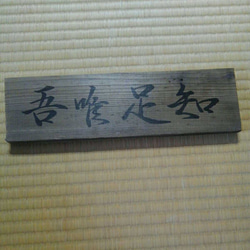 吾唯足知